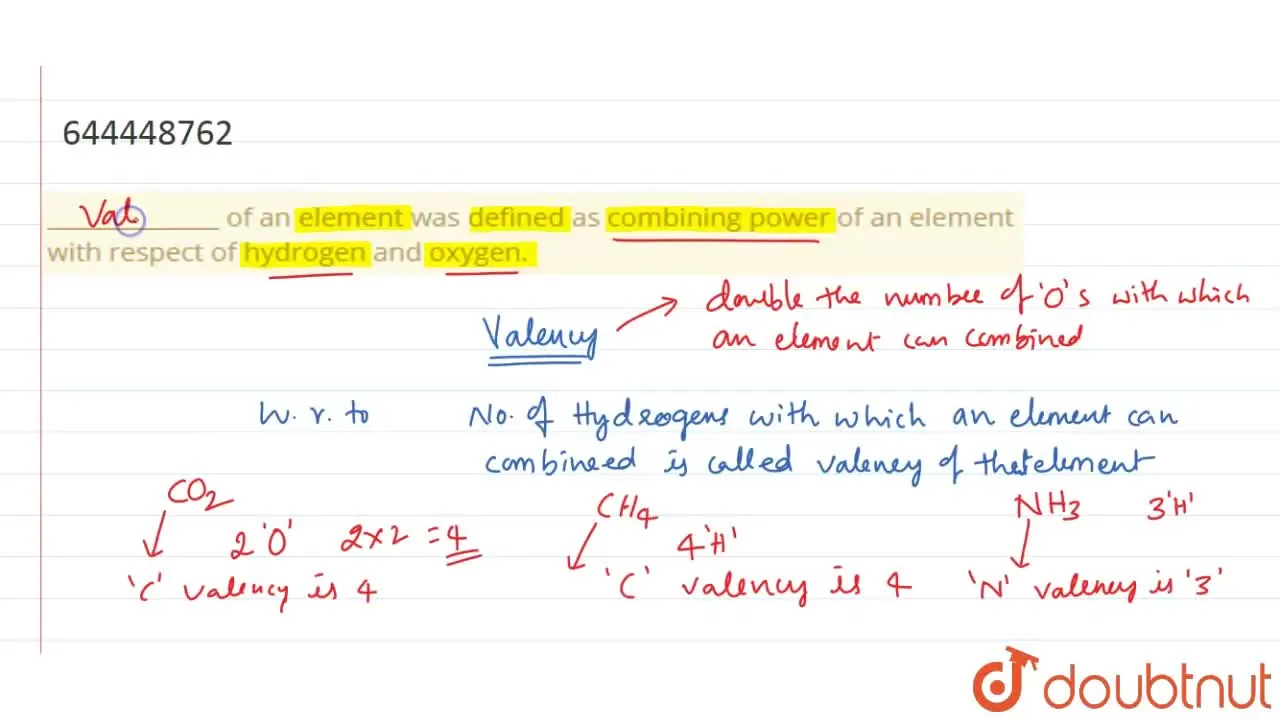 644448762
Val of an element was defined as combining power of an element
with respect of hydrogen and oxygen.
double the number of 'O's with which
an element can combined
Valency
W. r. to No. of Hydrogens with which an element can
combineed is called valency of that element
CO2
2 'O' 2x2 = 4
'C' valency is 4
CH4
4 'H'
'C' valency is 4
NH3 3 'H'
'N' valency is '3'
doubtnut